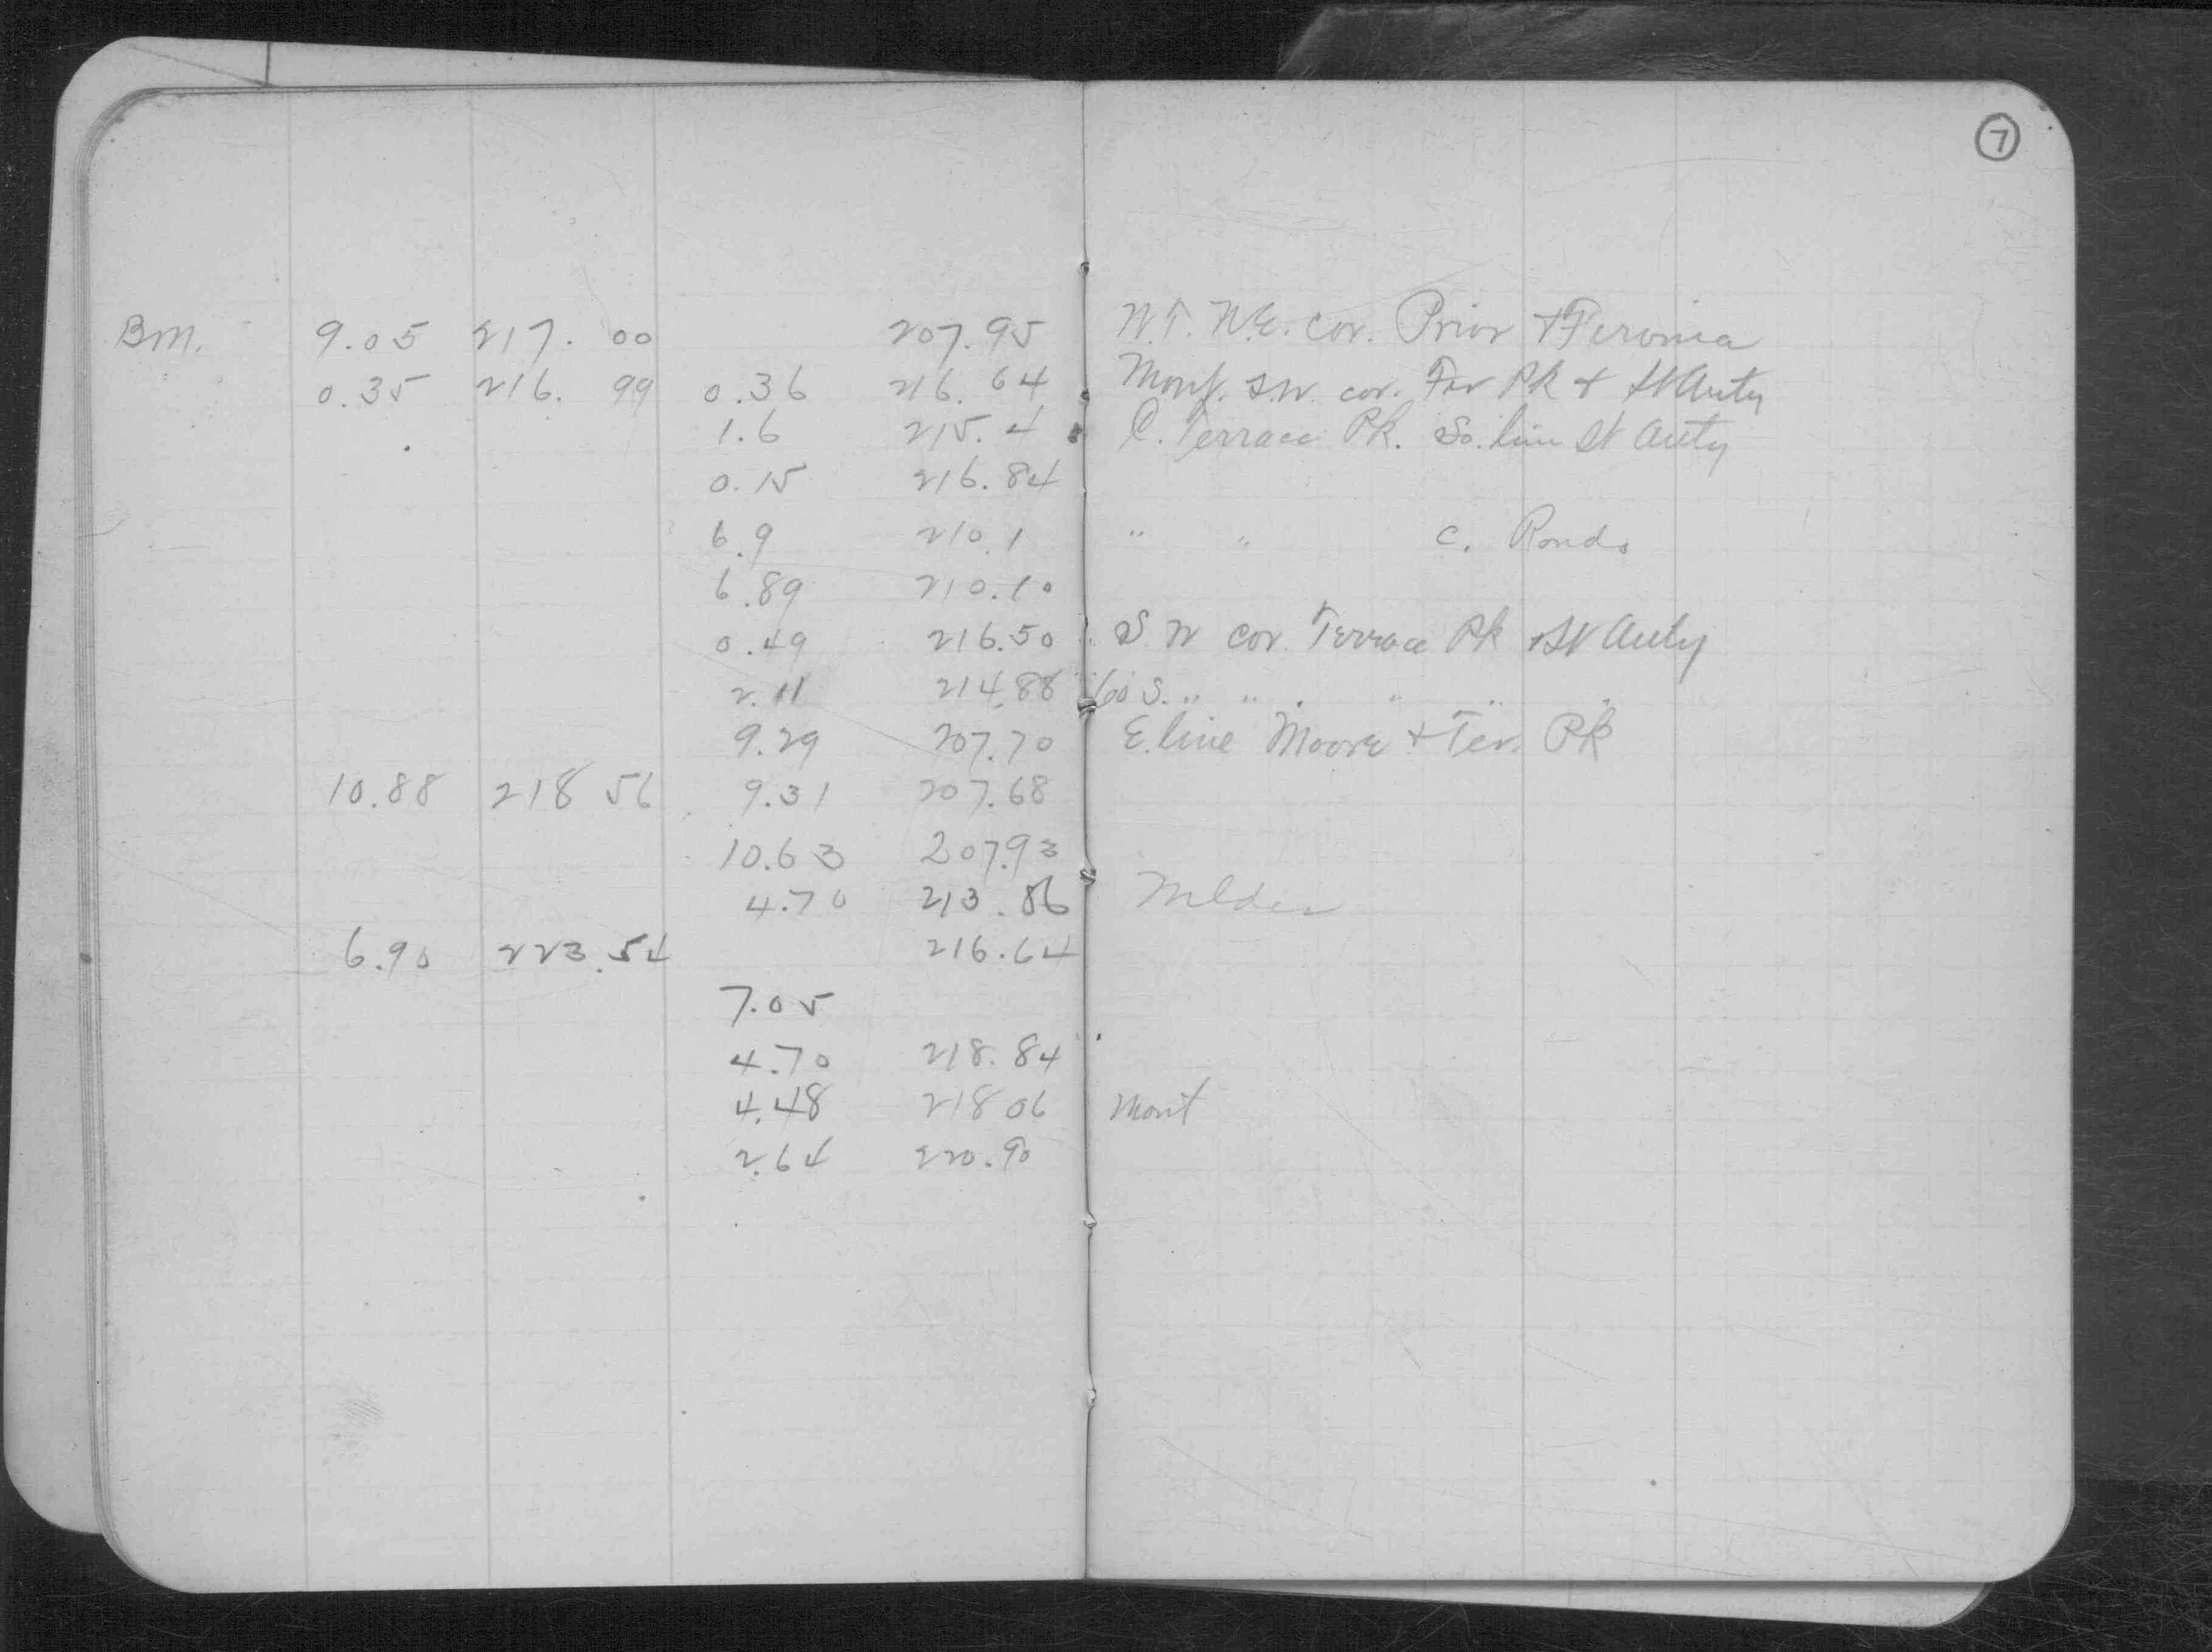 7
B.M. 9.05 217. 00 207.95 W.T. N.E. cor. Prior + Feronia
0.35 216. 99 0.36 216. 64 Mont. S.W. cor. Ter Pk & St Anty
1.6 215. 4 C. Terrace Pk. So. line St Anty
0.15 216.84
6.9 210.1 " " C. Rondo
6.89 210.10
0.49 216.50 S. W cor. Terrace Pk & St Anty
2.11 214.88 60 S. " " " " "
9.29 207.70 E. line Moore + Ter. Pk
10.88 218 56 9.31 207.68
10.63 207.93
4.70 213.86
6.90 223.54 216.64
7.05
4.70 218.84
4.48 218 06 Mont
2.64 220.90